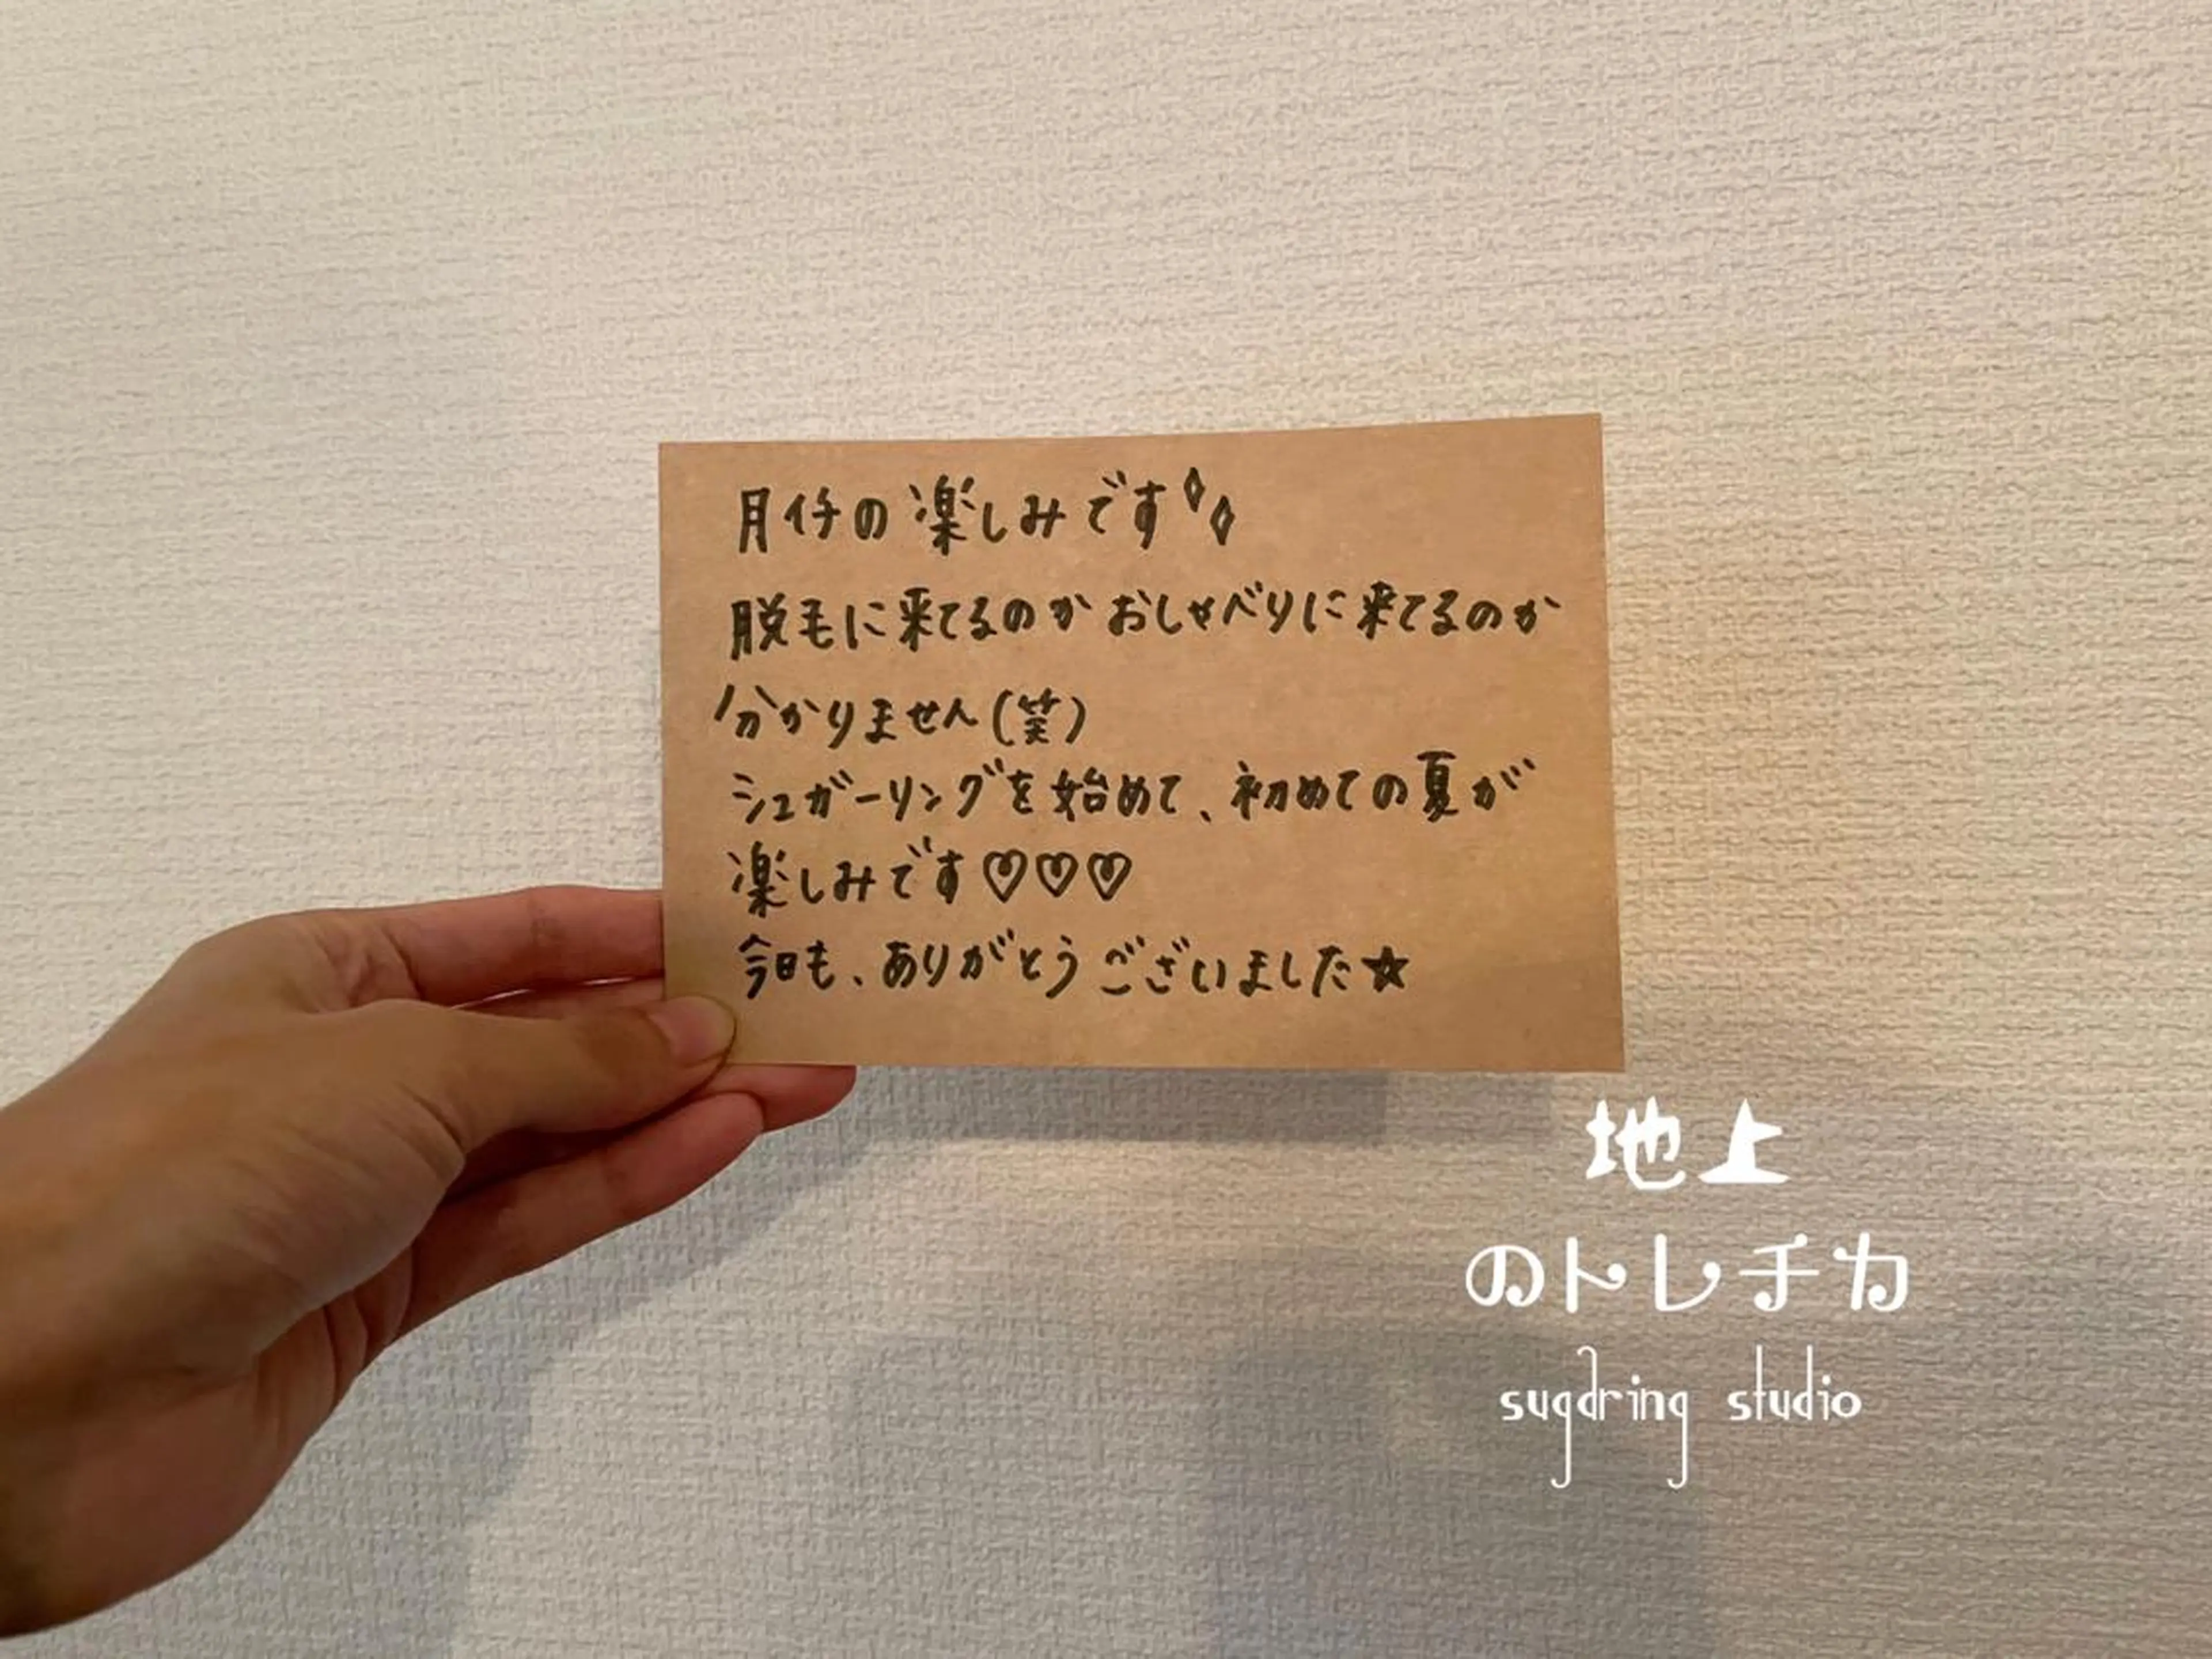 月イチの楽しみです✧✧
脱毛に来てるのかおしゃべりに来てるのか
分かりません(笑)
シュガーリングを始めて、初めての夏が
楽しみです♡♡♡
今日も、ありがとうございました☆
地上
のトレチカ
sugaring studio